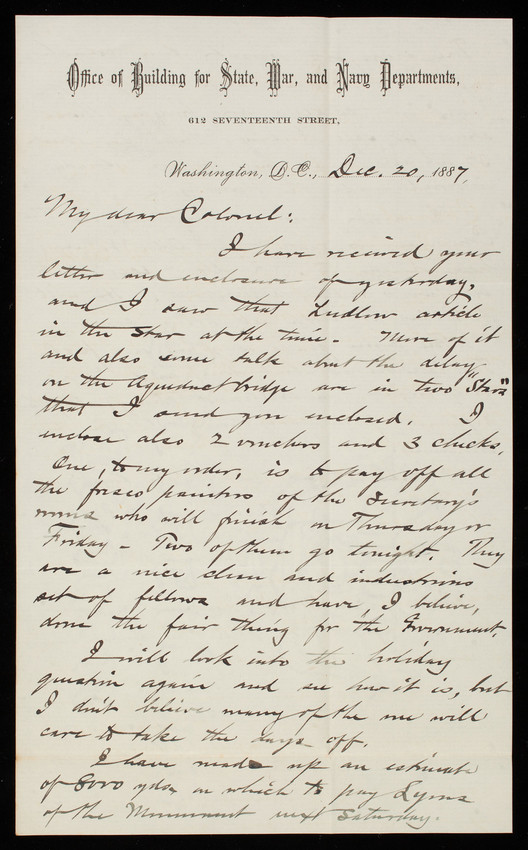 Office of Building for State, War, and Navy Departments,
612 SEVENTEENTH STREET.
Washington, D.C., Dec. 20, 1887.
My dear Colonel:
I have received your
letter and enclosure of yesterday,
and I saw that Ludlow article
in the Star at the time. More of it
and also some talk about the delay
on the Aqueduct bridge are in two "Stars"
that I send you enclosed. I
enclose also 2 vouchers and 3 checks.
One, to my order, is to pay off all
the fresco painters of the Secretary's
rooms who will finish on Thursday or
Friday - Two of them go tonight. They
are a nice clean and industrious
set of fellows and have, I believe,
done the fair thing for the Government.
I will look into the holiday
question again and see how it is, but
I don't believe many of the men will
care to take the days off.
I have made up an estimate
of 8000 yds. on which to pay Lyons
of the Monument next Saturday.